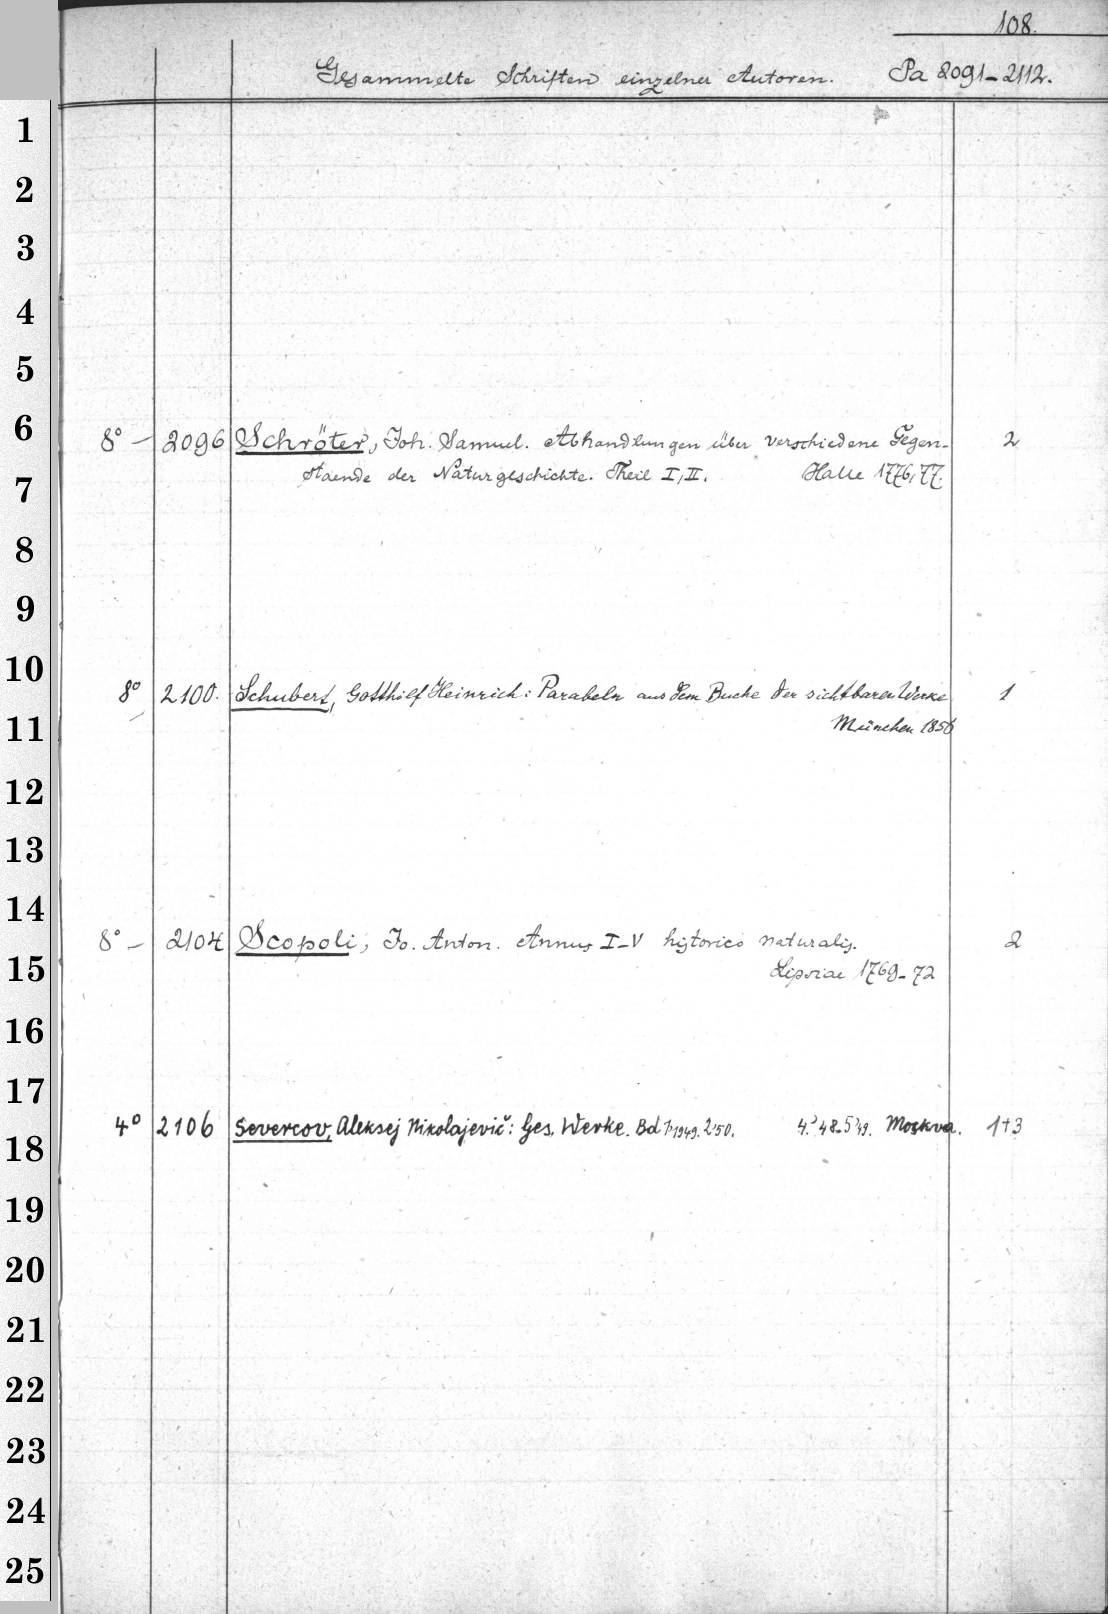 108.
Gesammelte Schriften einzelner Autoren. Pa 2091-2112.
1
2
3
4
5
6
8° — 2096 Schröter, Joh. Samuel. Abhandlungen über verschiedene Gegen- 2
staende der Naturgeschichte. Theil I, II. Halle 1776, 77.
7
8
9
10
8° 2100. Schubert, Gotthilf Heinrich: Parabeln aus dem Buche der sichtbaren Werke 1
München 1856
11
12
13
14
8° — 2104 Scopoli, Jo. Anton. Annus I-V historico naturalis. 2
Lipsiae 1769-72
15
16
17
4° 2106 Severcov, Aleksej Nikolajevič: Ges. Werke. Bd 1, 1949. 2, 50. 4, 48. 5, 49. Moskva. 1+3
18
19
20
21
22
23
24
25